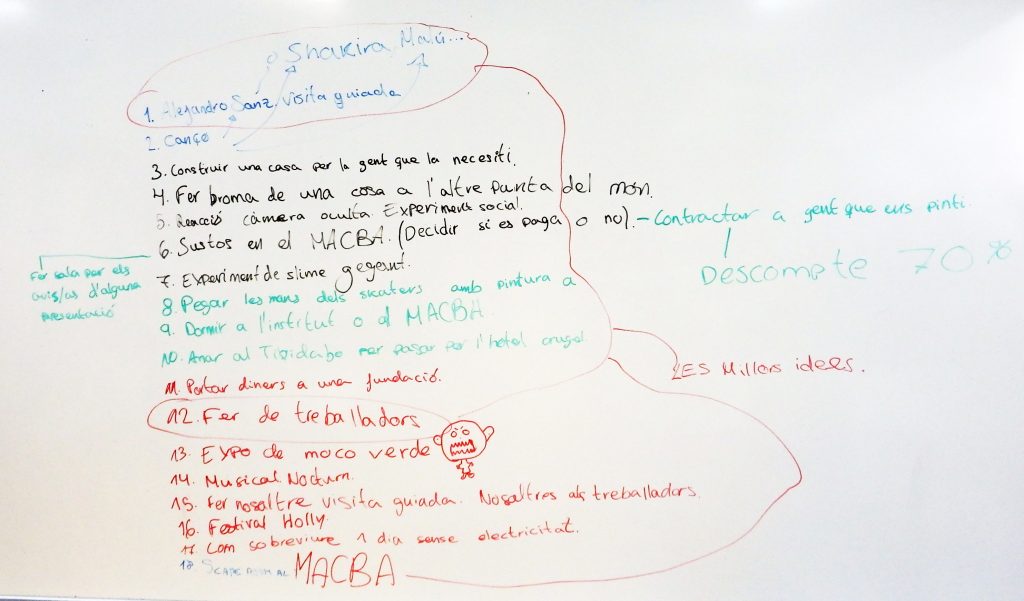 Shakira, Malú...
1. Alejandro Sanz, visita guiada
2. Canço
3. Construir una casa per la gent que la necesiti.
4. Fer broma de una cosa a l'altre punta del món.
5. Reacció càmera oculta Experiment social.
6. Sustos en el MACBA. (Decidir si es paga o no). - Contractar a gent que ens pinti.
Descompte 70%
7. Experiment de slime gegant.
Fer sala per els avis/as d'alguna
presentació
8. Pegar les mans dels skaters amb pintura a
9. Dormir a l'institut o al MACBA.
10. Anar al Tibidabo per passar por l'hotel
11. Portar diners a una fundació.
LES Millors idees.
12. Fer de treballadors
13. EXPO de moco verde
14. Musical Nocturn.
15. Fer nosaltre visita guiada. Nosaltres als treballadors.
16. Festival Holly.
17. Com sobreviure 1 dia sense electricitat.
18. MACBA